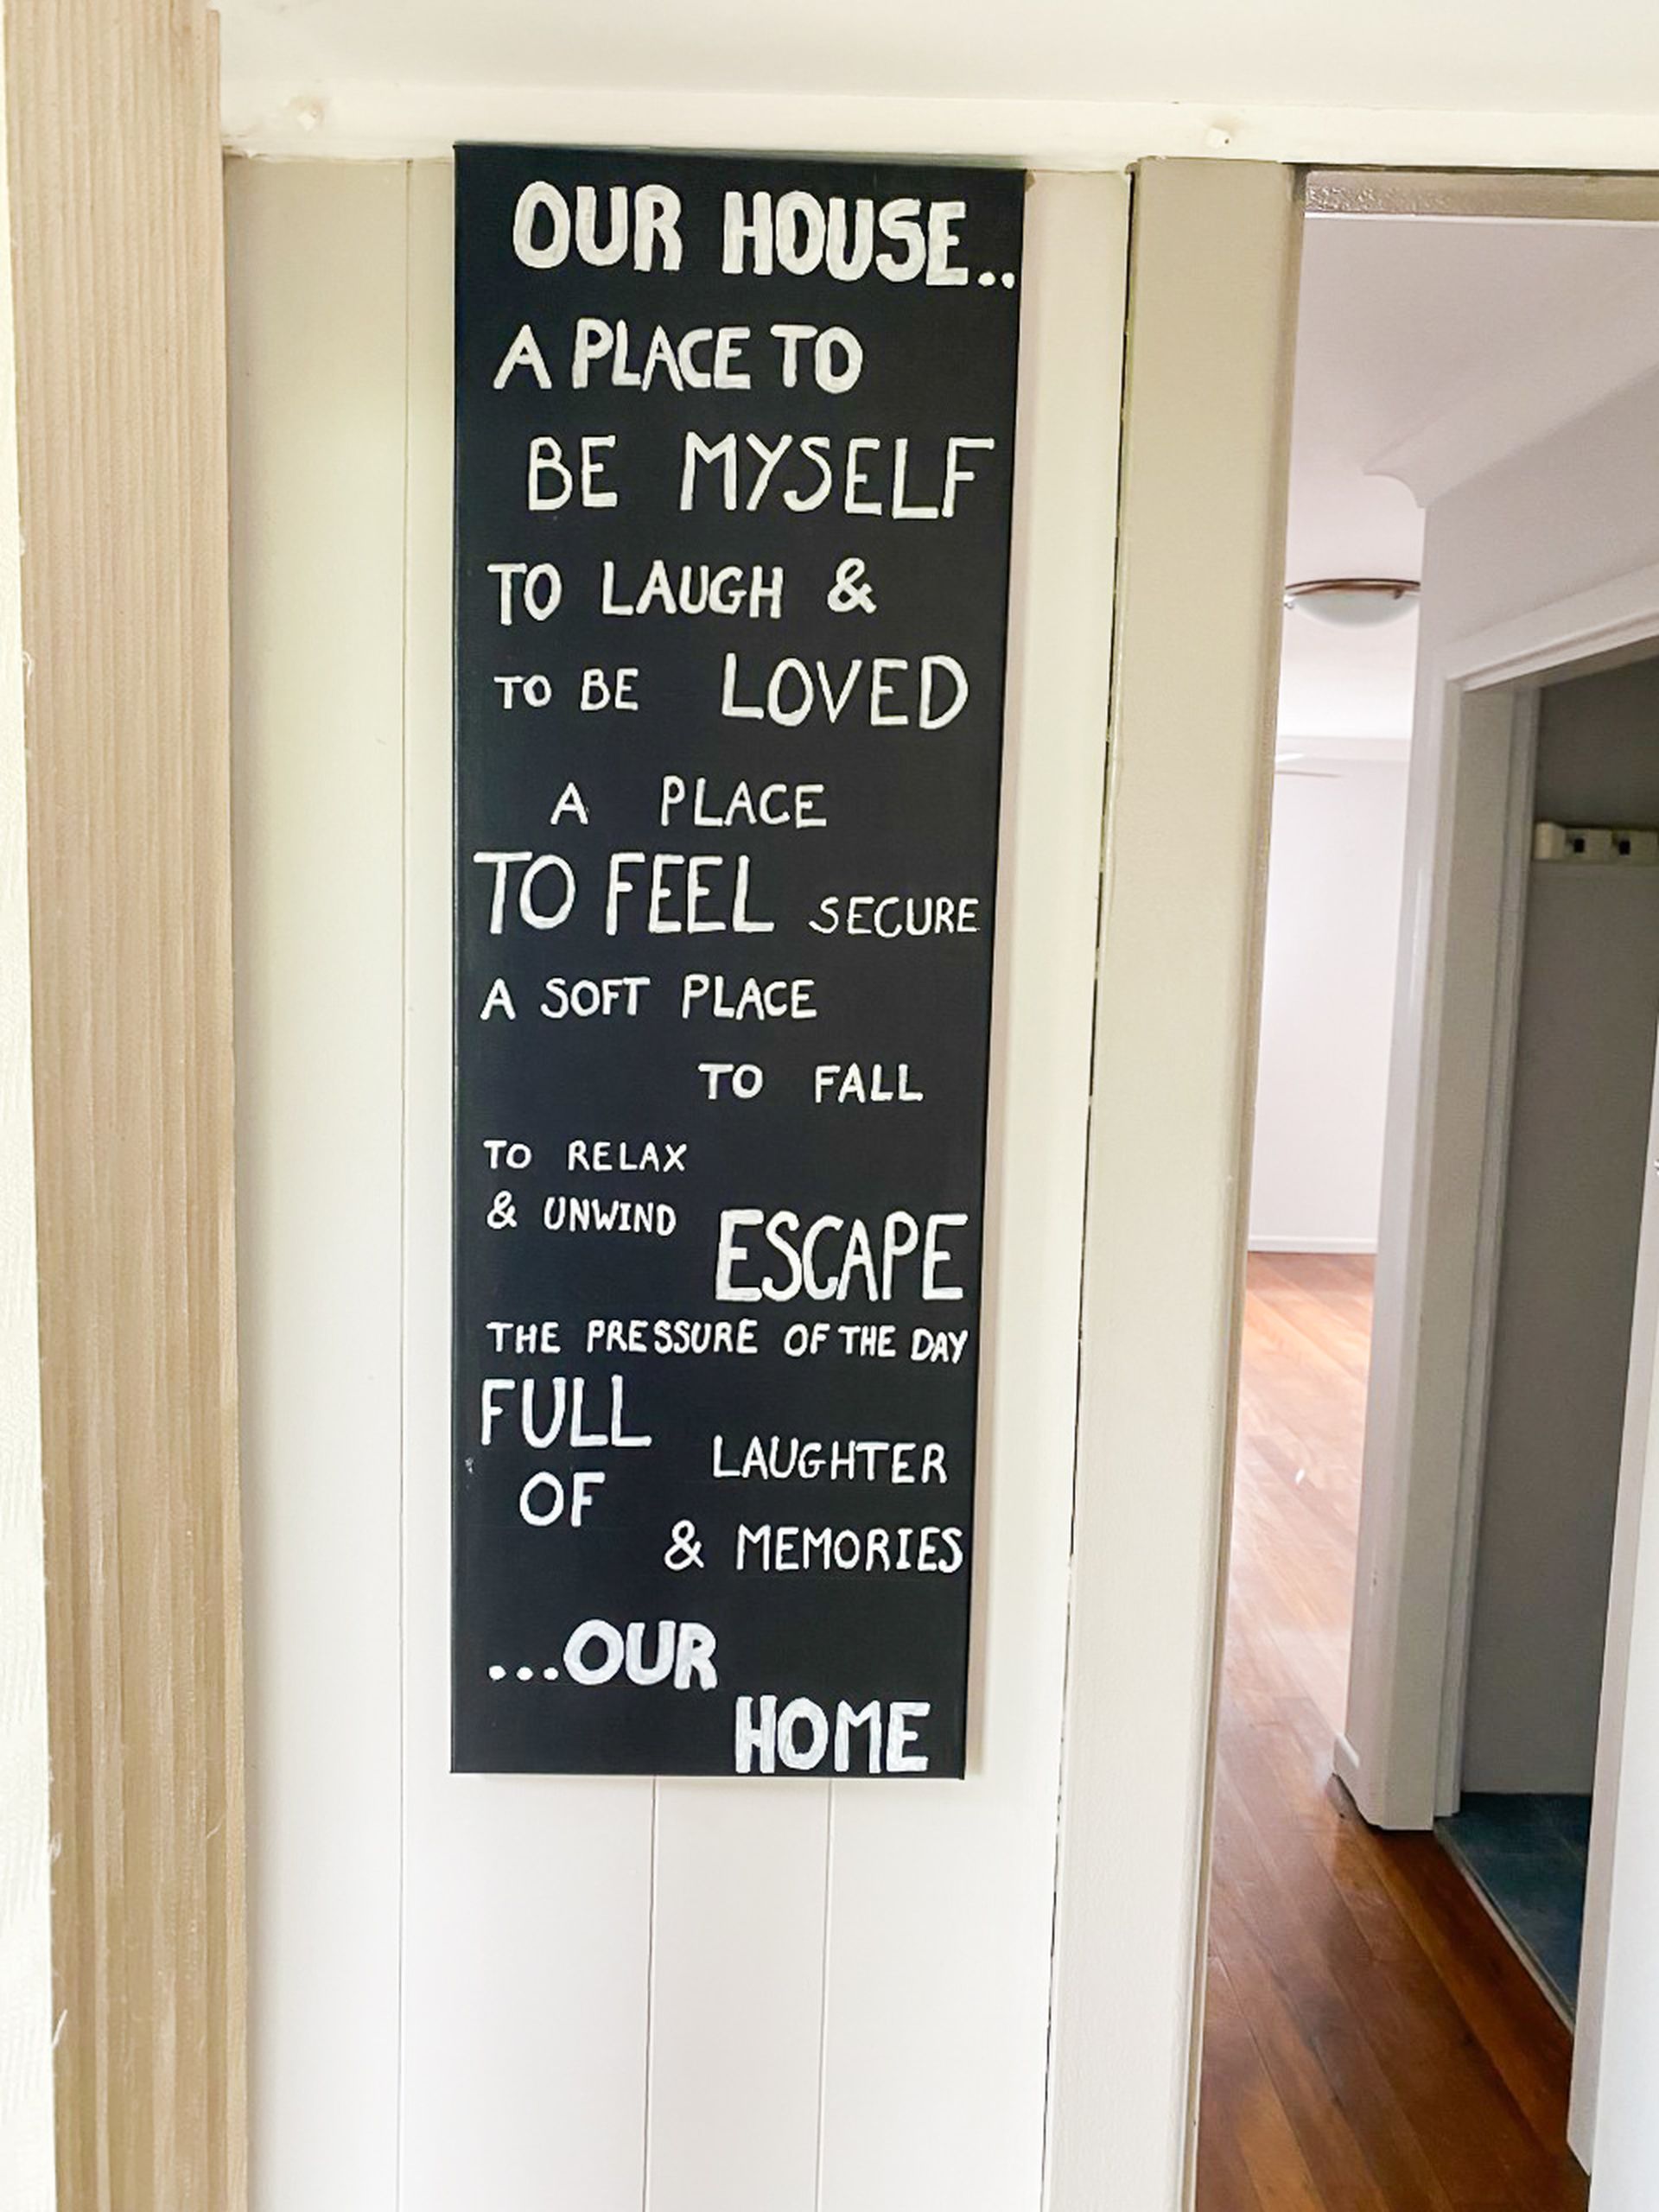 OUR HOUSE..
A PLACE TO
BE MYSELF
TO LAUGH &
TO BE LOVED
A PLACE
TO FEEL SECURE
A SOFT PLACE
TO FALL
TO RELAX
& UNWIND
ESCAPE
THE PRESSURE OF THE DAY
FULL
OF
LAUGHTER
& MEMORIES
...OUR
HOME